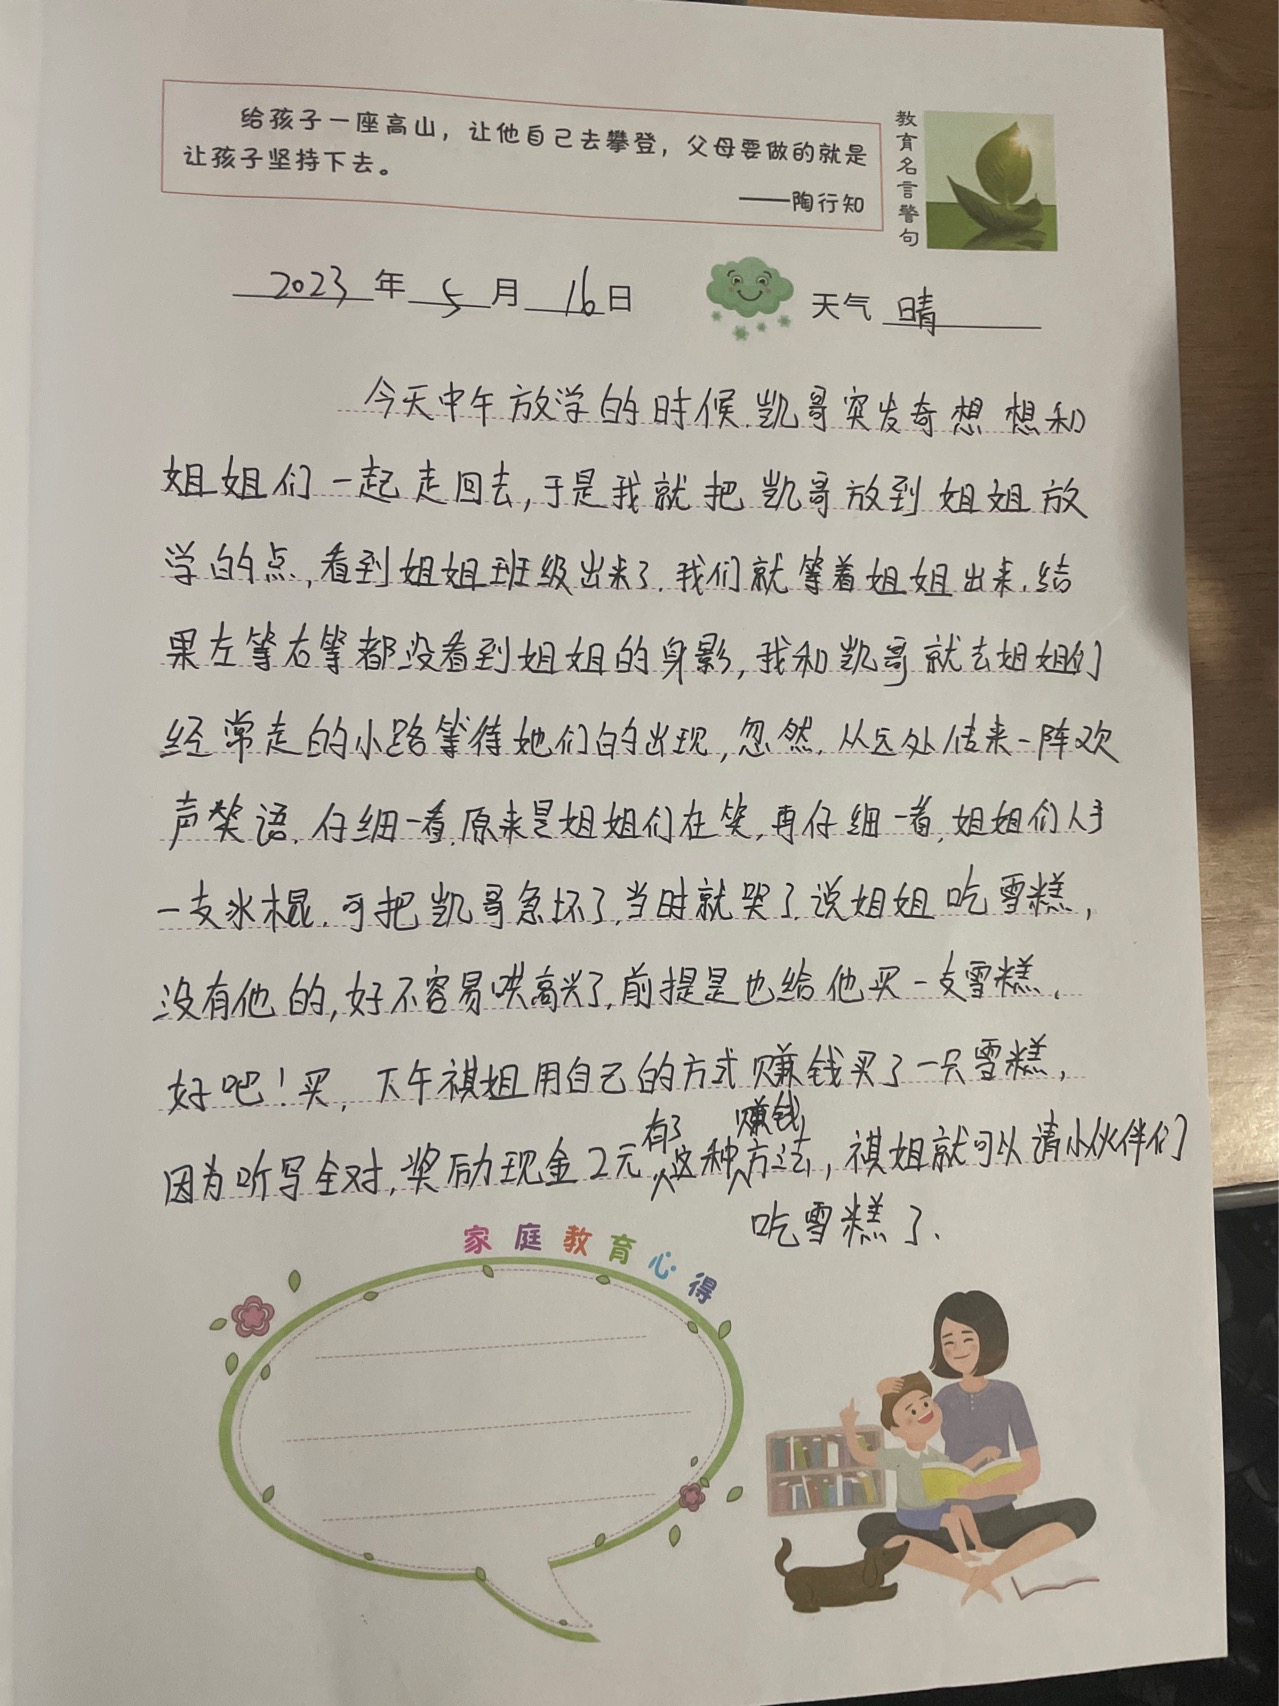 给孩子一座高山，让他自己去攀登，父母要做的就是
让孩子坚持下去。
——陶行知
教育名言警句
2023年5月16日
天气 晴
今天中午放学的时候.凯哥突发奇想 想和
姐姐们一起走回去,于是我就把凯哥放到姐姐放
学的点,看到姐姐班级出来了.我们就等着姐姐出来.结
果左等右等都没看到姐姐的身影,我和凯哥就去姐姐们
经常走的小路等待她们的出现,忽然.从远处传来一阵欢
声笑语.仔细一看.原来是姐姐们在笑,再仔细一看,姐姐们人手
一支冰棍.可把凯哥急坏了,当时就哭了.说姐姐吃雪糕,
没有他的,好不容易哄高兴了,前提是也给他买一支雪糕.
好吧!买,下午祺姐用自己的方式赚钱买了一只雪糕,
因为听写全对,奖励现金2元有了这种赚钱方法,祺姐就可以请小伙伴们
吃雪糕了.
家庭教育心得